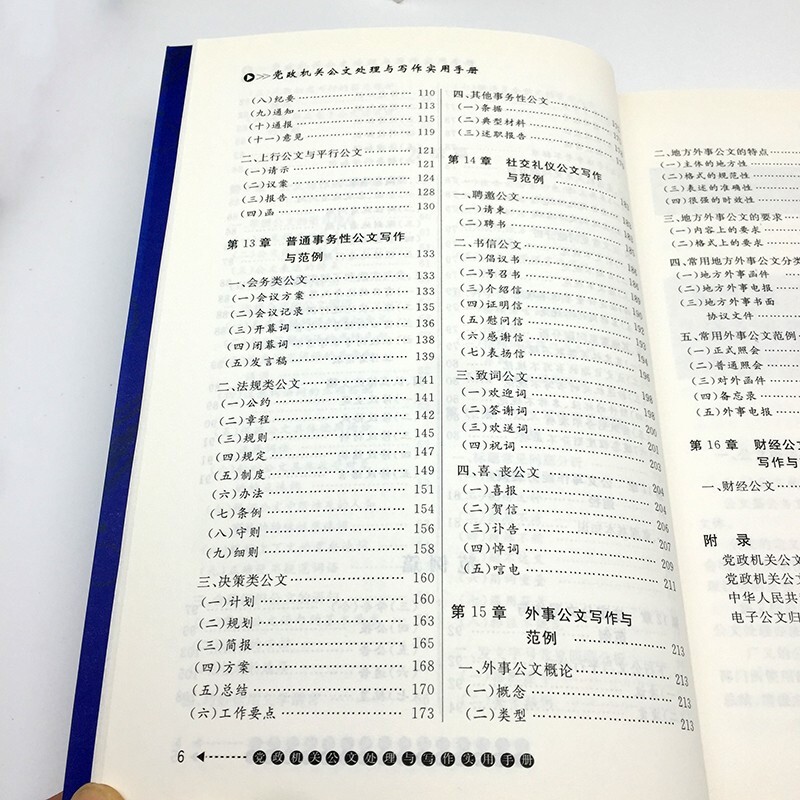 党政机关公文处理与写作实用手册
(八)纪要 110
(九)通知 113
(十)通报 115
(十一)意见 119
二、上行公文与平行公文 121
(一)请示 121
(二)议案 124
(三)报告 128
(四)函 130
第13章 普通事务性公文写作
与范例 133
一、会务类公文 133
(一)会议方案 133
(二)会议记录 135
(三)开幕词 136
(四)闭幕词 138
(五)发言稿 139
二、法规类公文 141
(一)公约 141
(二)章程 142
(三)规则 145
(四)规定 147
(五)制度 149
(六)办法 151
(七)条例 154
(八)守则 156
(九)细则 158
三、决策类公文 160
(一)计划 160
(二)规划 163
(三)简报 165
(四)方案 168
(五)总结 170
(六)工作要点 173
四、其他事务性公文
(一)条据
(二)典型材料
(三)述职报告
第14章 社交礼仪公文写作
与范例
一、聘邀公文
(一)请柬
(二)聘书
二、书信公文
(一)倡议书
(二)号召书
(三)介绍信
(四)证明信 190
(五)慰问信 192
(六)感谢信 193
(七)表扬信 194
三、致词公文 196
(一)欢迎词 198
(二)答谢词 198
(三)欢送词 200
(四)祝词 201
203
四、喜、丧公文
(一)喜报 204
(二)贺信 204
(三)讣告 206
(四)悼词 207
(五)唁电 209
211
第15章 外事公文写作与
范例 213
一、外事公文概论 213
(一)概念 213
(二)类型 213
6 党政机关公文处理与写作实用手册
二、地方外事公文的特点
(一)主体的地方性
(二)格式的规范性
(三)表述的准确性
(四)很强的时效性
三、地方外事公文的要求
(一)内容上的要求
(二)格式上的要求
四、常用地方外事公文分类
(一)地方外事函件
(二)地方外事电报
(三)地方外事书面
协议文件
五、常用外事公文范例
(一)正式照会
(二)普通照会
(三)对外函件
(四)备忘录
(五)外事电报
第16章 财经公文
写作与
一、财经公文
附 录
党政机关公文
党政机关公文
中华人民共
电子公文归